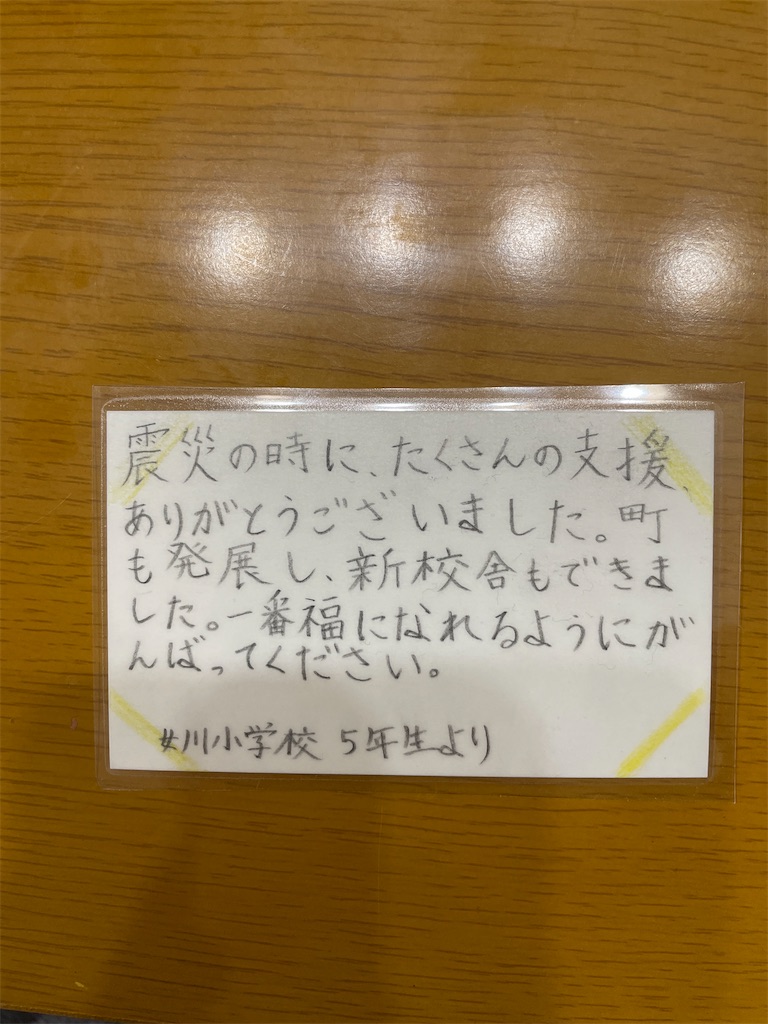 震災の時に、たくさんの支援、
ありがとうございました。町
も発展し、新校舎もできま
した。一番福になれるようにが
んばってください。
女川小学校 5年生より